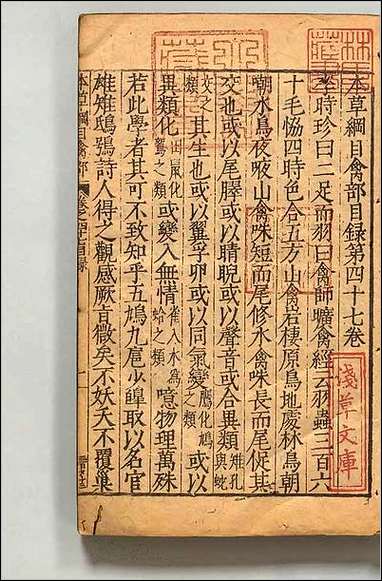 本草綱目禽部目録第四十七卷
李時珍曰二足而羽曰禽師曠禽經云羽蟲三百六
十毛恊四時色合五方山禽岩棲原鳥地處林鳥朝
嘲水鳥夜㖡山禽咮短而尾修水禽咮長而尾促其
交也或以尾臎或以睛睨或以聲音或合異類雉孔與蛇
交之類其生也或以翼孚卵或以同氣變鷹化鳩之類或以
異類化田鼠化鴽之類或變入無情雀入水爲蛤之類噫物理萬殊
若此學者其可不致知乎五鳩九扈少皥取以名官
雄雉鴟鴞詩人得之觀感厥旨微矣不妖夭不覆巢
本草綱目禽部
淺草文庫